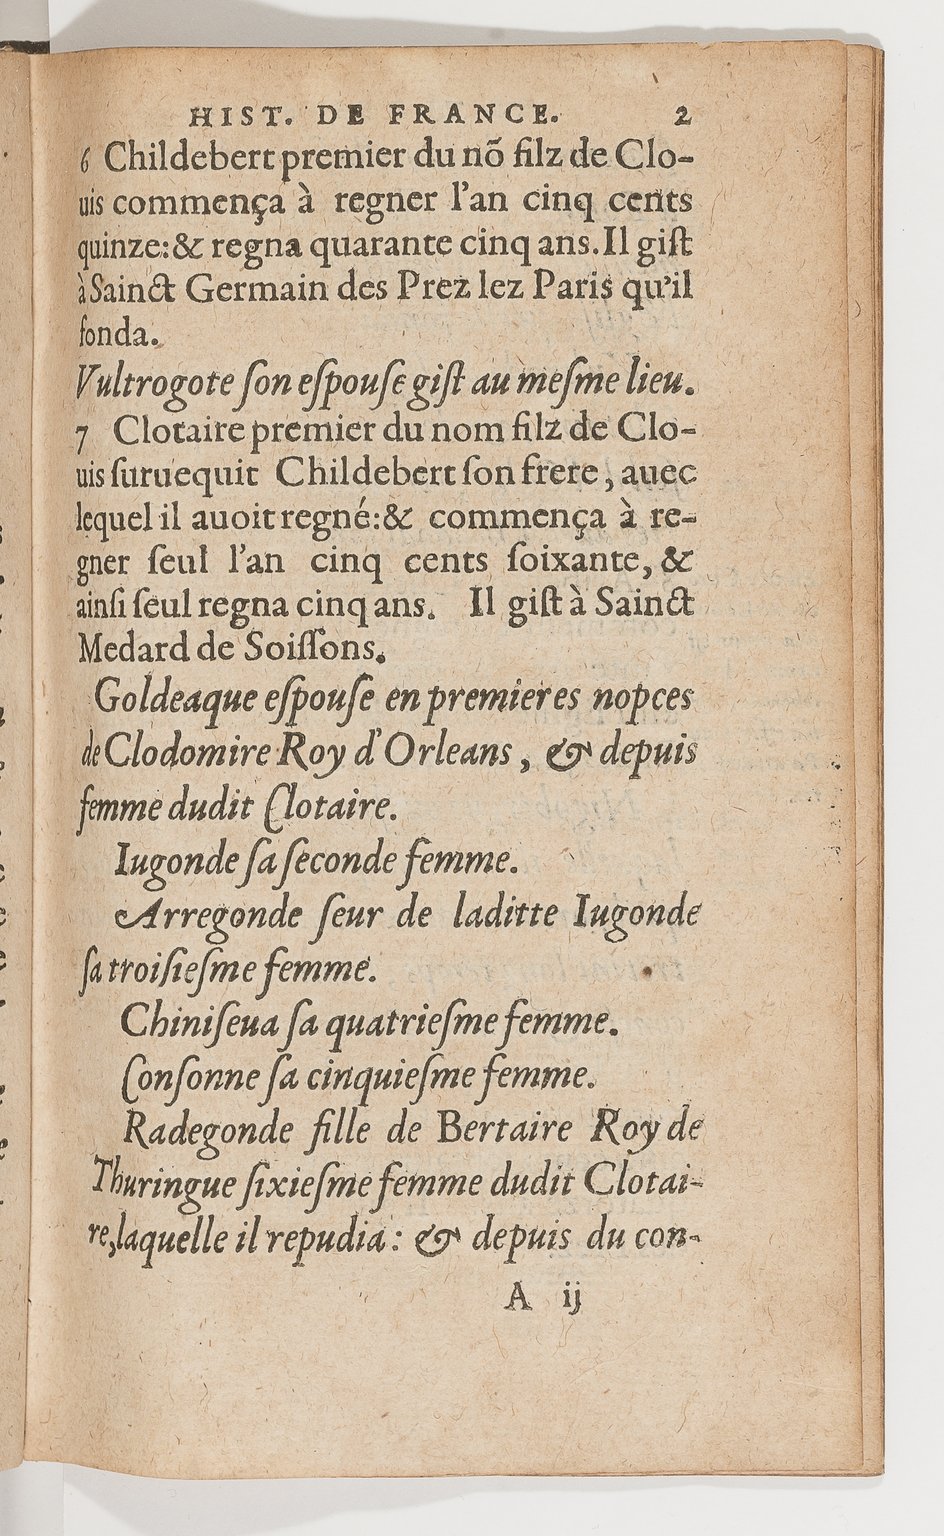 HIST. DE FRANCE. 2
6 Childebert premier du nõ filz de Clo-
uis commença à regner l'an cinq cents
quinze:& regna quarante cinq ans. Il giſt
à Sainct Germain des Prez lez Paris qu'il
fonda.
Vultrogote ſon eſpouſe giſt au meſme lieu.
7 Clotaire premier du nom filz de Clo-
uis ſuruequit Childebert ſon frere, auec
lequel il auoit regné:& commença à re-
gner ſeul l'an cinq cents ſoixante, &
ainſi ſeul regna cinq ans. Il giſt à Sainct
Medard de Soiſſons.
Goldeaque eſpouſe en premieres nopces
de Clodomire Roy d'Orleans, & depuis
femme dudit Clotaire.
Iugonde ſa ſeconde femme.
Arregonde ſeur de laditte Iugonde
ſa troiſieſme femme.
Chiniſeua ſa quatrieſme femme.
Conſonne ſa cinquieſme femme.
Radegonde fille de Bertaire Roy de
Thuringue ſixieſme femme dudit Clotai-
re, laquelle il repudia: & depuis du con-
A ij